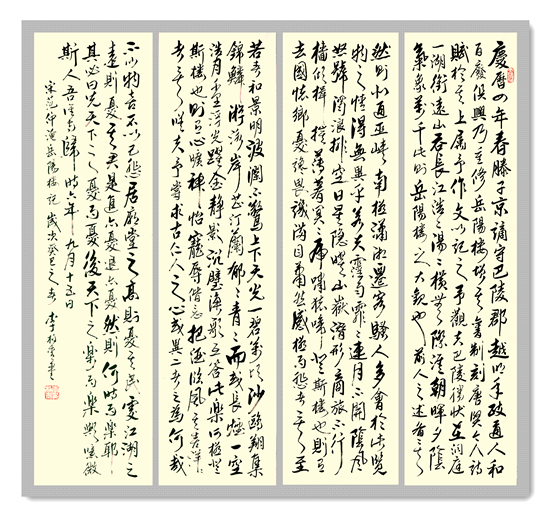 慶曆四年春滕子京謫守巴陵郡越明年政通人和
百廢俱興乃重修岳陽樓增其舊制刻唐賢今人詩
賦於其上屬予作文以記之予觀夫巴陵勝狀在洞庭
一湖銜遠山吞長江浩浩湯湯橫無際涯朝暉夕陰
氣象萬千此則岳陽樓之大觀也前人之述備矣
然則北通巫峽南極瀟湘遷客騷人多會於此覽
物之情得無異乎若夫霪雨霏霏連月不開陰風
怒號濁浪排空日星隱曜山嶽潛形商旅不行
檣傾楫摧薄暮冥冥虎嘯猿啼登斯樓也則有
去國懷鄉憂讒畏譏滿目蕭然感極而悲者矣至
若春和景明波瀾不驚上下天光一碧萬頃沙鷗翔集
錦鱗游泳岸芷汀蘭郁郁青青而或長煙一空
皓月千里浮光躍金靜影沉璧漁歌互答此樂何極登
斯樓也則有心曠神怡寵辱偕忘把酒臨風其喜洋洋
者矣嗟夫予嘗求古仁人之心或異二者之為何哉
不以物喜不以己悲居廟堂之高則憂其民處江湖之
遠則憂其君是進亦憂退亦憂然則何時而樂耶
其必曰先天下之憂而憂後天下之樂而樂歟噫微
斯人吾誰與歸時六年九月十五日
宋范仲淹岳陽樓記 歲次癸巳之春 李